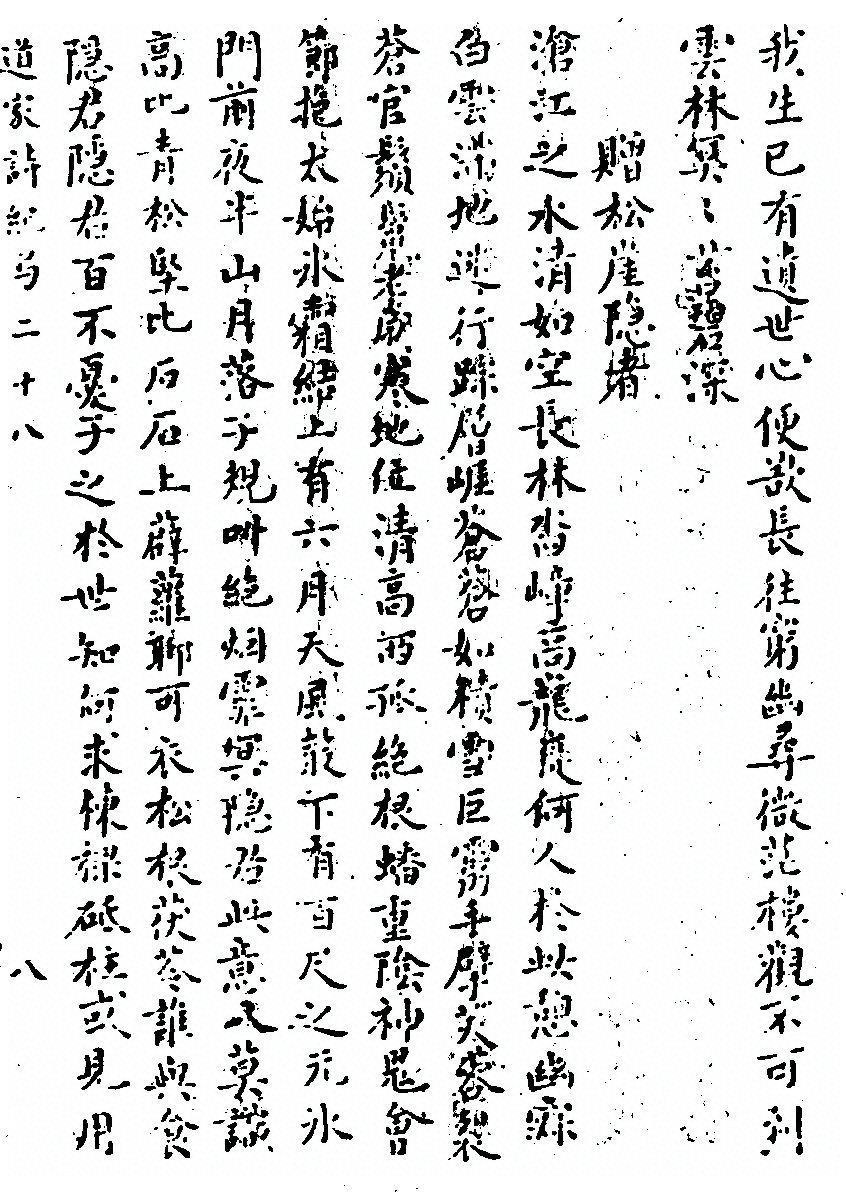 我生已有遺世心便欲長往窮幽尋微茫樓觀不可到
雲林冥〻薜蘿深
贈松崖隐者
滄江之水清如空長林沓嶂高龍嵸何人於此憩幽寐
白雲滿地迷行蹤層崖蒼蒼如積雪巨靈手擘芙蓉製
蒼官鬚髯老歲寒地位清高而孤絶根蟠重陰神鬼會
節挹太始氷霜結上有六月天風鼓下有百尺之元氷
門前夜半山月落子規呌絶烟霏暝隐君此意人莫識
高比青松堅比石石上薜蘿聊可衣松根茯苓誰與食
隱君隱君百不憂子之於世知何求棟樑砥柱或見用
道家詩紀寫二十八 八